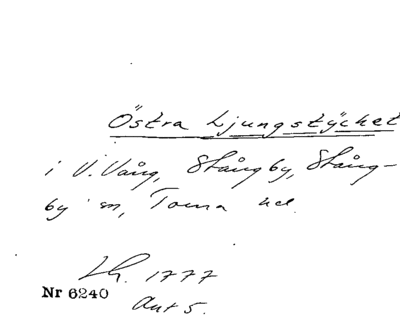 Östra Ljungstycket
i V. Vång, Stångby, Stång-
by sn, Torna hd.
Lh. 1777
Nr 6240
Akt 5.